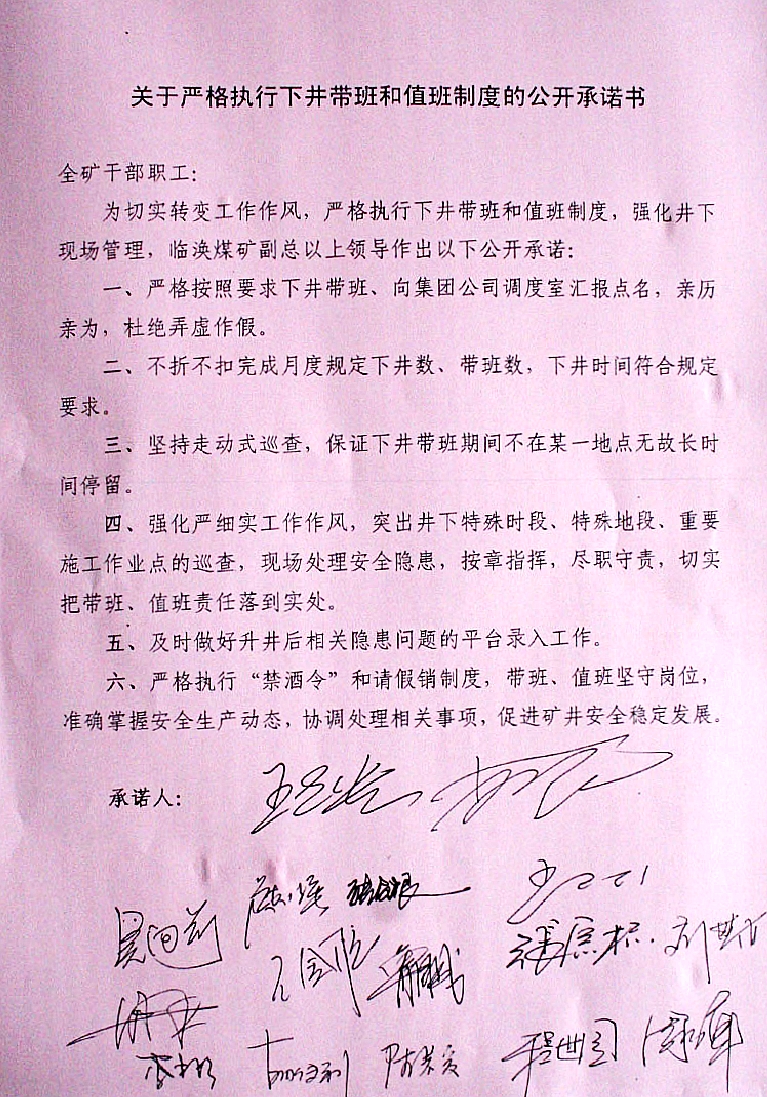 关于严格执行下井带班和值班制度的公开承诺书
全矿干部职工：
为切实转变工作作风，严格执行下井带班和值班制度，强化井下
现场管理，临涣煤矿副总以上领导作出以下公开承诺：
一、严格按照要求下井带班、向集团公司调度室汇报点名，亲历
亲为，杜绝弄虚作假。
二、不折不扣完成月度规定下井数、带班数，下井时间符合规定
要求。
三、坚持走动式巡查，保证下井带班期间不在某一地点无故长时
间停留。
四、强化严细实工作作风，突出井下特殊时段、特殊地段、重要
施工作业点的巡查，现场处理安全隐患，按章指挥，尽职守责，切实
把带班、值班责任落到实处。
五、及时做好升井后相关隐患问题的平台录入工作。
六、严格执行“禁酒令”和请假销制度，带班、值班坚守岗位，
准确掌握安全生产动态，协调处理相关事项，促进矿井安全稳定发展。
承诺人：